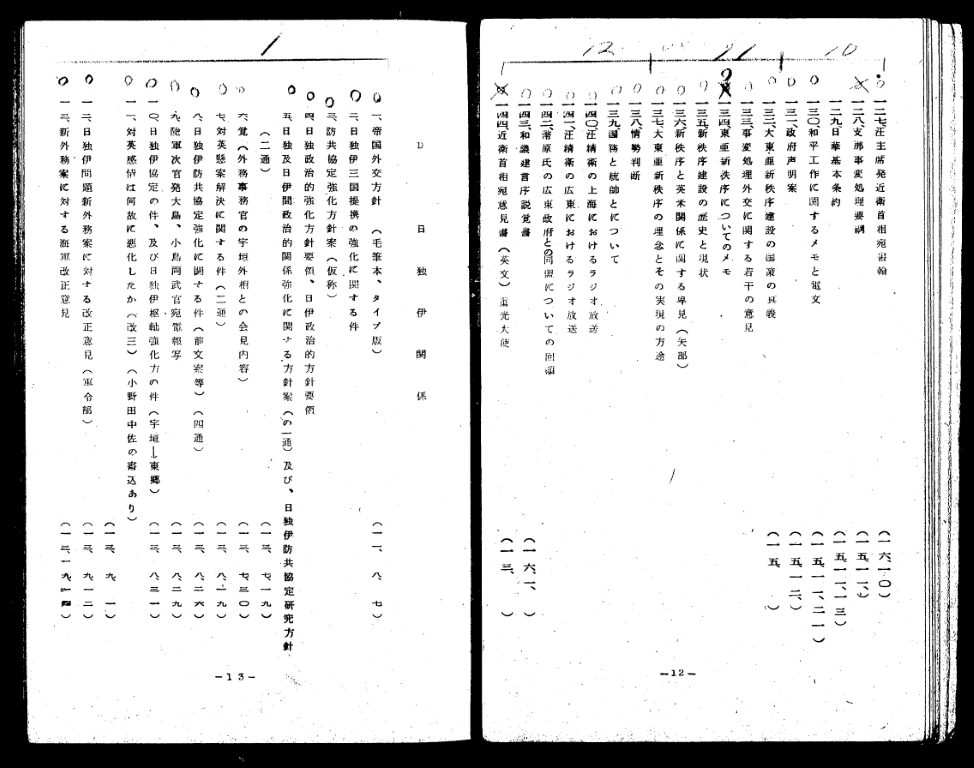 12 11 10
一二七、汪主席発近衛首相宛書翰 (一六・一〇)
一二八、支那事変処理要綱 (一五・一一・)
一二九、日華基本条約 (一五・一一・一三)
一三〇、和平工作に関するメモと電文 (一五・一一・二一)
一三一、政府声明案 (一五・一二・)
一三二、大東亜新秩序建設の国策の真義 (一五・ )
一三三、事変処理外交に関する若干の意見
一三四、東亜新秩序についてのメモ
一三五、新秩序建設の歴史と現状
一三六、新秩序と英米関係に関する卑見(矢部)
一三七、大東亜新秩序の理念とその実現の方途
一三八、情勢判断
一三九、国務と統帥とについて
一四〇、汪精衛の上海におけるラジオ放送
一四一、汪精衛の広東におけるラジオ放送
一四二、蒲原氏の広東政府との問題についての回顧
一四三、和議建言序説覚書 (一六・一・ )
一四四、近衛首相宛意見書(英文)重光大使 (一三・ )
-12-
1
D 日独伊関係
一、帝国外交方針 (毛筆本、タイプ版) (一一・八・七)
二、日独伊三国提携の強化に関する件
三、防共協定強化方針案(仮称)
四、日独政治的強化方針要領、日伊政治的方針要領
五、日独及日伊間政治的関係強化に関する方針案(の一通)及び、日独伊防共協定研究方針
(二通) (一三・七・一九)
六、覚(外務事務官の宇垣外相との会見内容) (一三・七・三〇)
七、対英懸案解決に関する件(二通) (一三・八・一九)
八、日独伊防共協定強化に関する件(前文案等)(四通) (一三・八・二六)
九、陸軍次官発大島、小島両武官宛電報写 (一三・八・二九)
一〇、日独伊協定の件、及び日独伊枢軸強化方の件(宇垣―東郷) (一三・八・三一)
一一、対英感情は何故に悪化したか(改三)(小野田中佐の書込あり)
(一三・九・一)
一二、日独伊問題新外務案に対する改正意見(軍令部) (一三・九・一二)
一三、新外務案に対する海軍改正意見 (一三・九・一四)
-13-